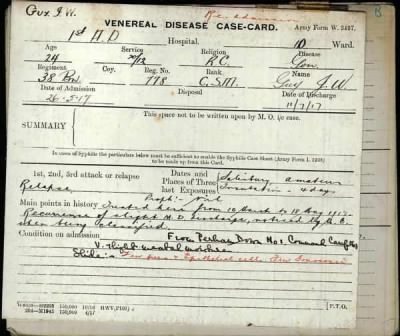 Guy J.W.
Re-admission
B
VENEREAL DISEASE CASE-CARD.
Army Form W. 3497.
1st A.D. Hospital. 1D Ward.
Age Service Religion Disease
24 R.C. Gon.
Regiment Coy. Reg. No. Rank Name
38 Bn 778 C.S.M. Guy J.W.
Date of Admission Disposal Date of Discharge
26-5-17 11/7/17
This space not to be written upon by M. O. i/c case.
SUMMARY
In cases of Syphilis the particulars below must be sufficient to enable the Syphilis Case Sheet (Army Form I. 1238)
to be made up from this Card.
1st, 2nd, 3rd attack or relapse
Relapse
Dates and
Places of Three
last Exposures
Salisbury amateur
Incubation - 4 days
Proph:- nil
Main points in history Treated here from 10 March to 18 May 1917.
Recurrence of slight M.D. discharge, noticed by M.O.
when being classified.
From Perham Down No 1 Command
Condition on admission
V. slight meatal moisture
Slide:- Few pus + Epithelial cells. Few
150,000 10/16 HWV(P193)
150,000 4/17
P.T.O.